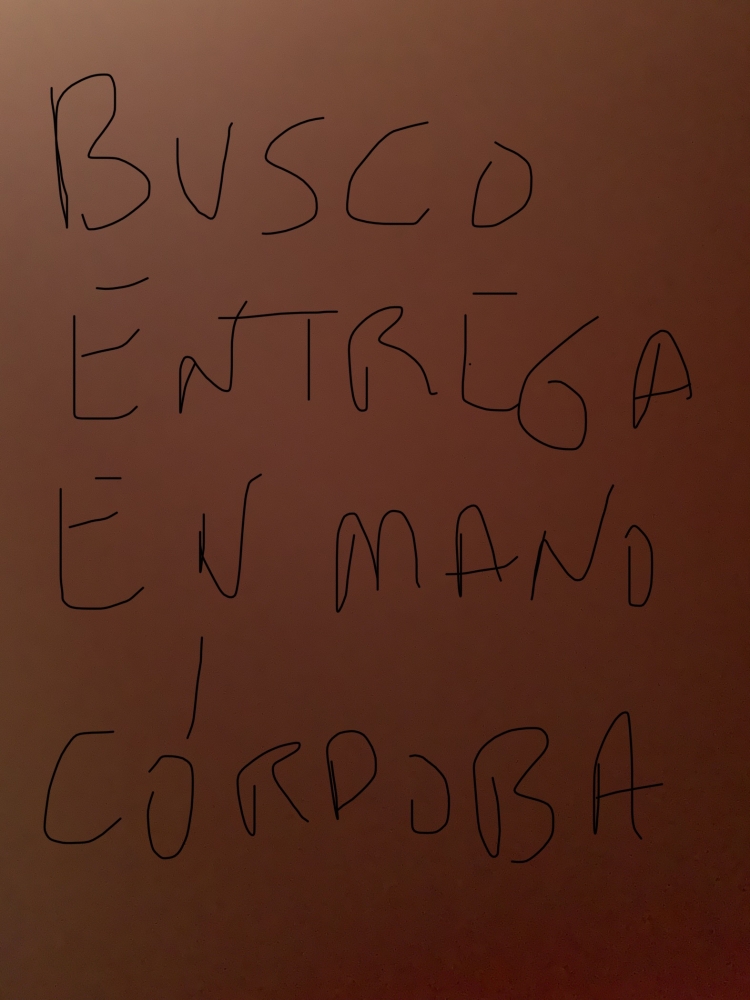 BUSCO
ENTREGA
EN MANO
CÓRDOBA